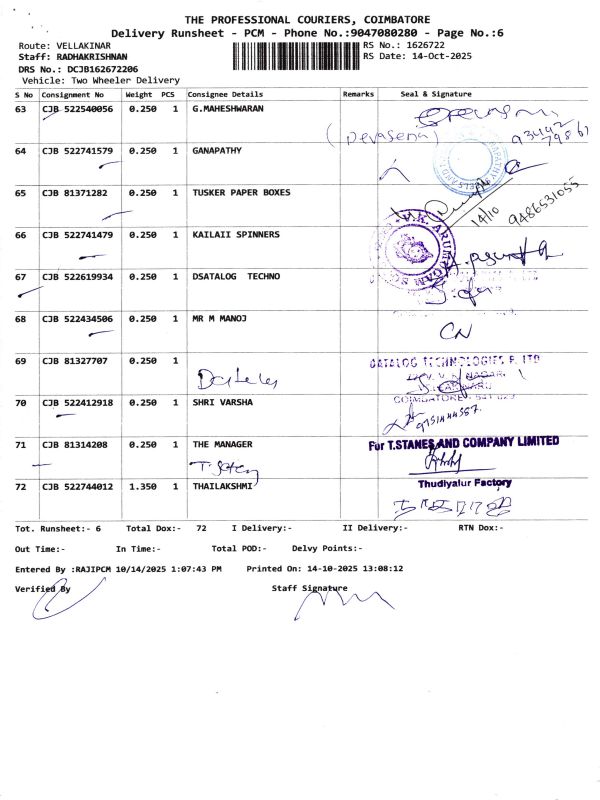 THE PROFESSIONAL COURIERS, COIMBATORE
Delivery Runsheet - PCM - Phone No.:9047080280 - Page No.:6
Route: VELLAKINAR RS No.: 1626722
Staff: RADHAKRISHNAN RS Date: 14-Oct-2025
DRS No.: DCJB162672206
Vehicle: Two Wheeler Delivery
S No Consignment No Weight PCS Consignee Details Remarks Seal & Signature
63 CJB 522540056 0.250 1 G.MAHESHWARAN
(Devasena) 93442
79861
64 CJB 522741579 0.250 1 GANAPATHY
65 CJB 81371282 0.250 1 TUSKER PAPER BOXES
14/10 9486531055
66 CJB 522741479 0.250 1 KAILAII SPINNERS
67 CJB 522619934 0.250 1 DSATALOG TECHNO
68 CJB 522434506 0.250 1 MR M MANOJ
CN
69 CJB 81327707 0.250 1
DATALOG TECHNOLOGIES P. LTD
COIMBATORE
70 CJB 522412918 0.250 1 SHRI VARSHA
9751444557
71 CJB 81314208 0.250 1 THE MANAGER
For T.STANES AND COMPANY LIMITED
72 CJB 522744012 1.350 1 THAILAKSHMI
Thudiyalur Factory
Tot. Runsheet:- 6 Total Dox:- 72 I Delivery:- II Delivery:- RTN Dox:-
Out Time:- In Time:- Total POD:- Delvy Points:-
Entered By :RAJIPCM 10/14/2025 1:07:43 PM Printed On: 14-10-2025 13:08:12
Verified By Staff Signature